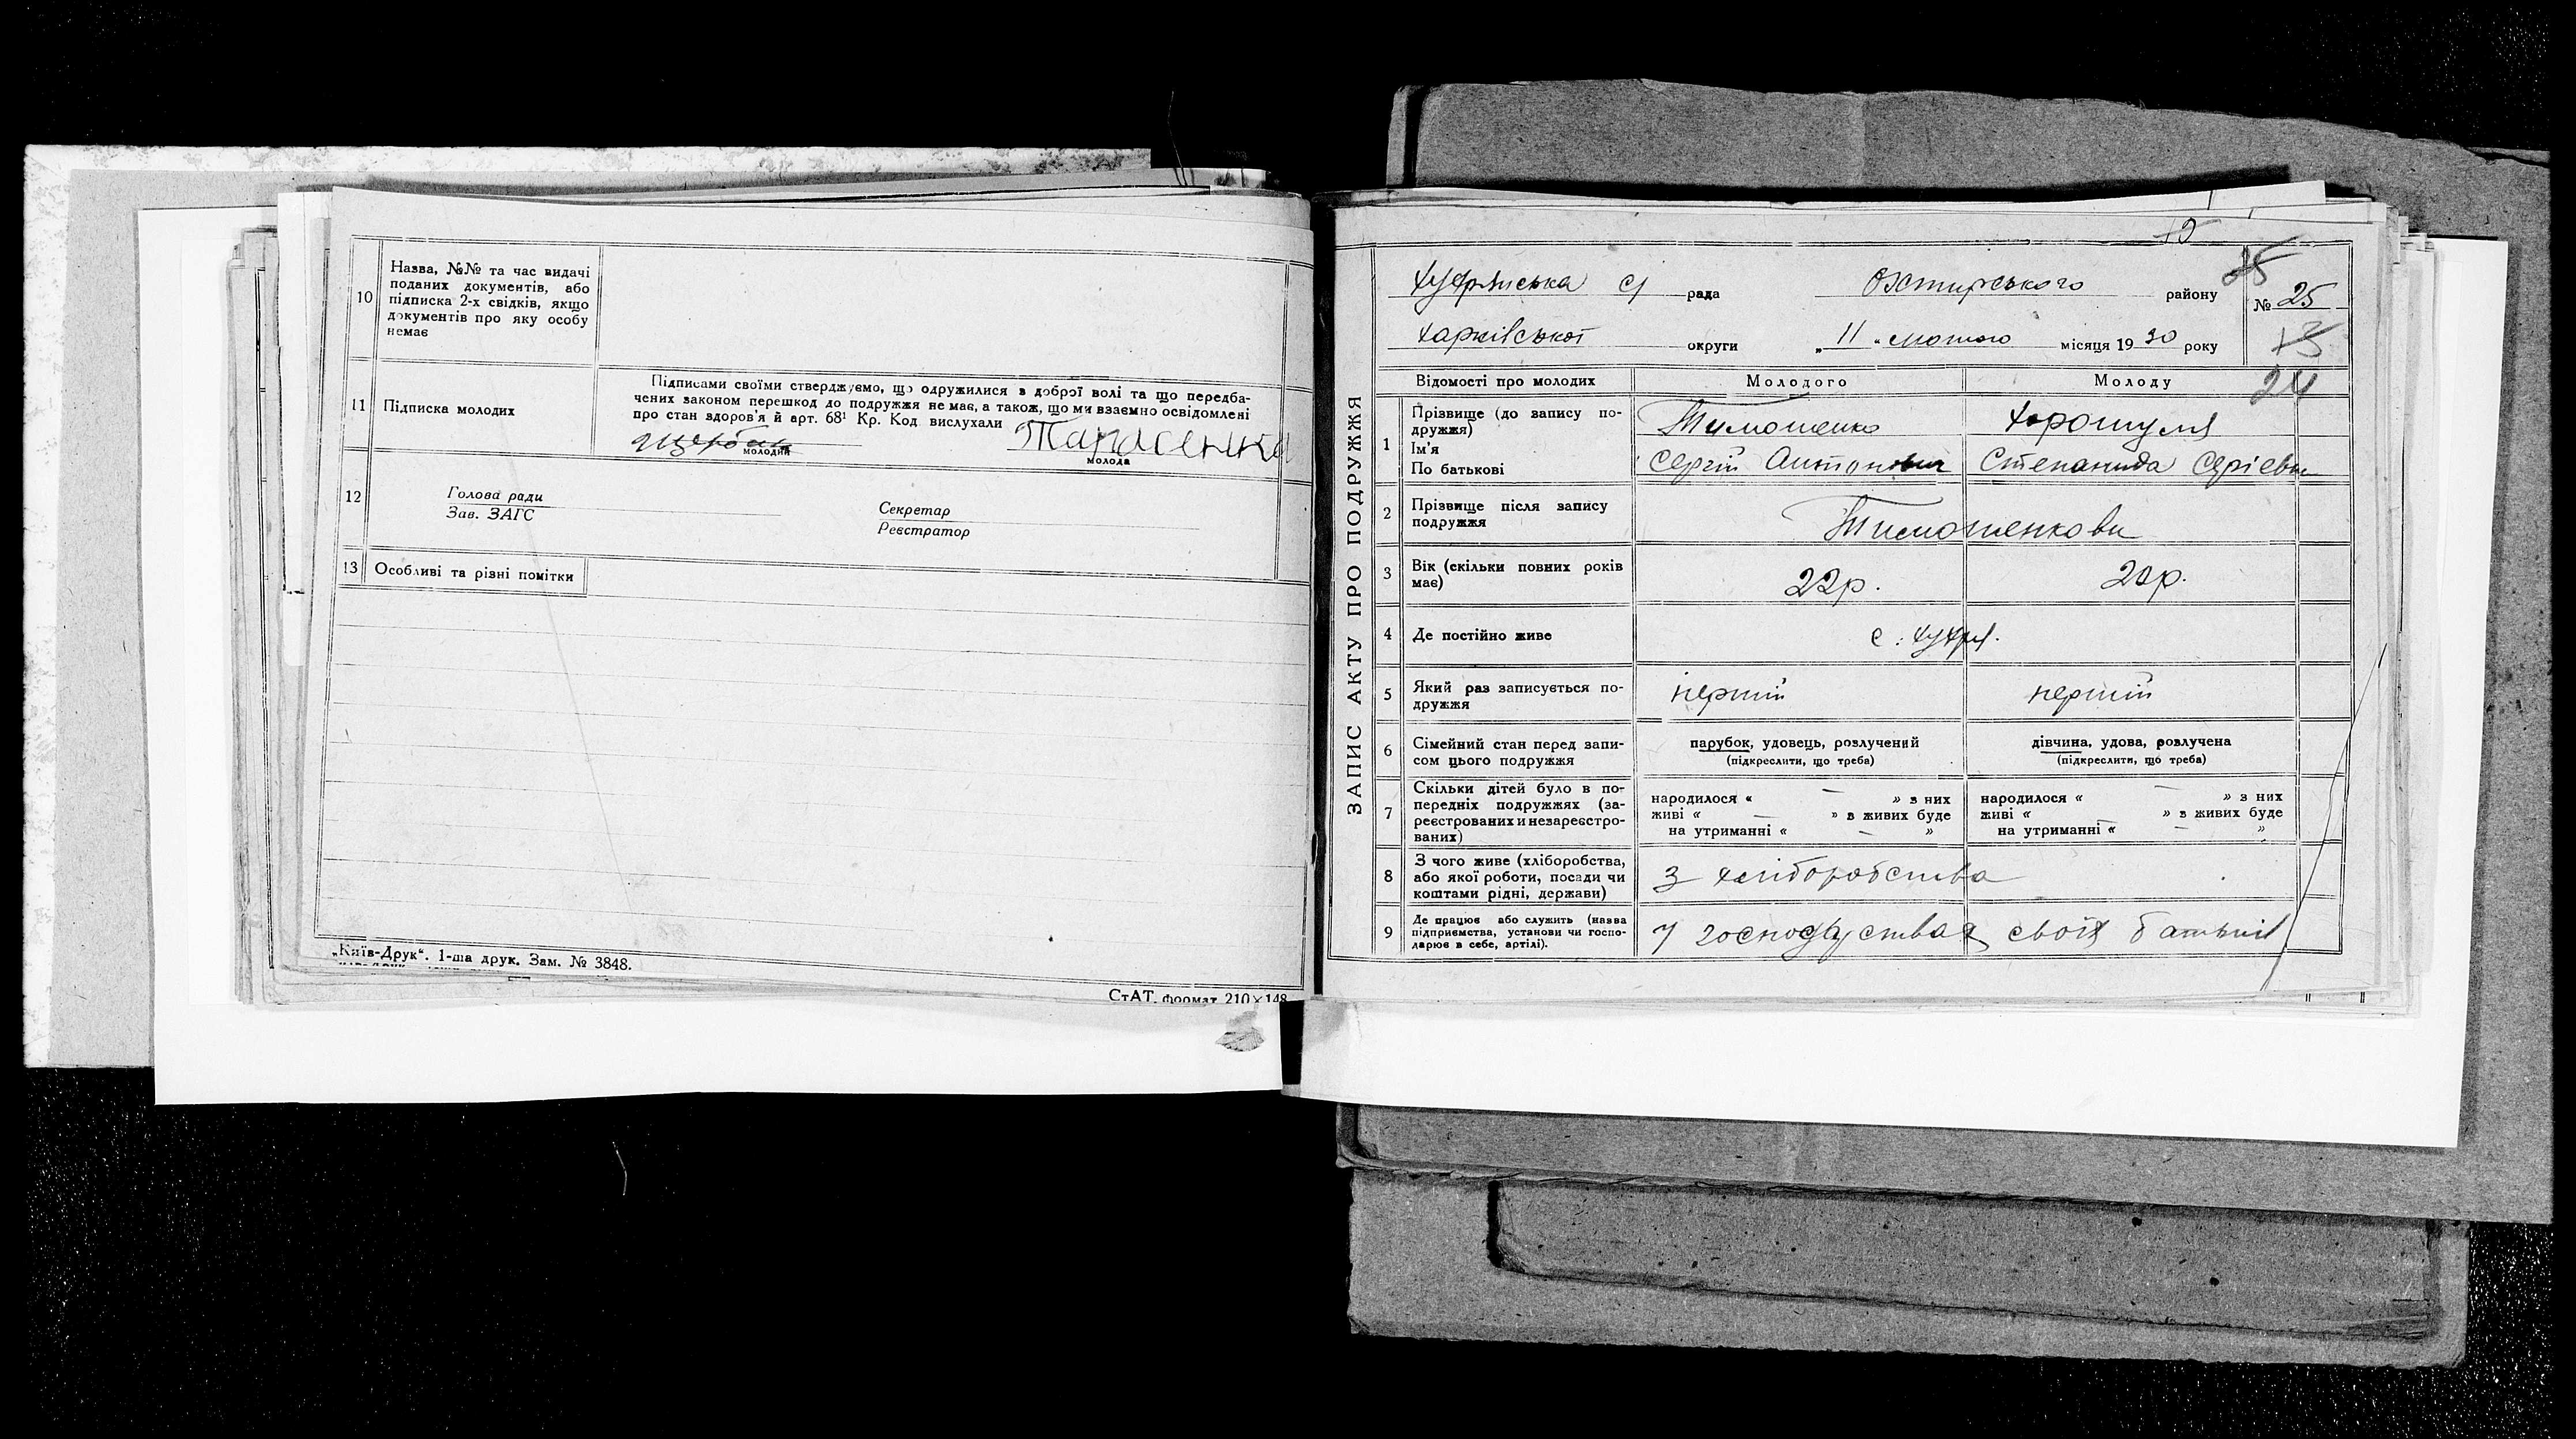 10
Назва, №№ та час видачі
поданих документів, або
підписка 2-х свідків, якщо
документів про яку особу
немає
11
Підписка молодих
Підписами своїми стверджуємо, що одружилися з доброї волі та що передба-
чених законом перешкод до подружжя немає, а також, що ми взаємно освідомлені
про стан здоров'я й арт. 68¹ Кр. Код. вислухали
Тарасенка
молодий
молода
12
Голова ради
Зав. ЗАГС
Секретар
Реєстратор
13 Особливі та різні помітки
„Київ-Друк“. 1-ша друк. Зам. № 3848.
СтАТ. формат 210×148
ЗАПИС АКТУ ПРО ПОДРУЖЖЯ
Хухрянська с/ рада Охтирського району
№ 25
Харківської округи „11“ лютого місяця 1930 року
24
Відомості про молодих
Молодого
Молоду
1
Прізвище (до запису по-
дружжя)
Ім'я
По батькові
Тимошенко
Сергій Антонович
Хорошуля
Степанида Сергіевн
2
Прізвище після запису
подружжя
Тимошенкови
3
Вік (скільки повних років
має)
22р.
20р.
4
Де постійно живе
с. Хухря.
5
Який раз записується по-
дружжя
перший
перший
6
Сімейний стан перед запи-
сом цього подружжя
парубок, удовець, розлучений
(підкреслити, що треба)
дівчина, удова, розлучена
(підкреслити, що треба)
7
Скільки дітей було в по-
передніх подружжях (за-
реєстрованих и незареєстро-
ваних)
народилося « — » з них
живі « — » з живих буде
на утриманні « — »
народилося « — » з них
живі « — » з живих буде
на утриманні « — »
8
З чого живе (хліборобства,
або якої роботи, посади чи
коштами рідні, держави)
З хліборобства
9
Де працює або служить (назва
підприємства, установи чи госпо-
дарює в себе, артілі).
У господарствах своїх батьків